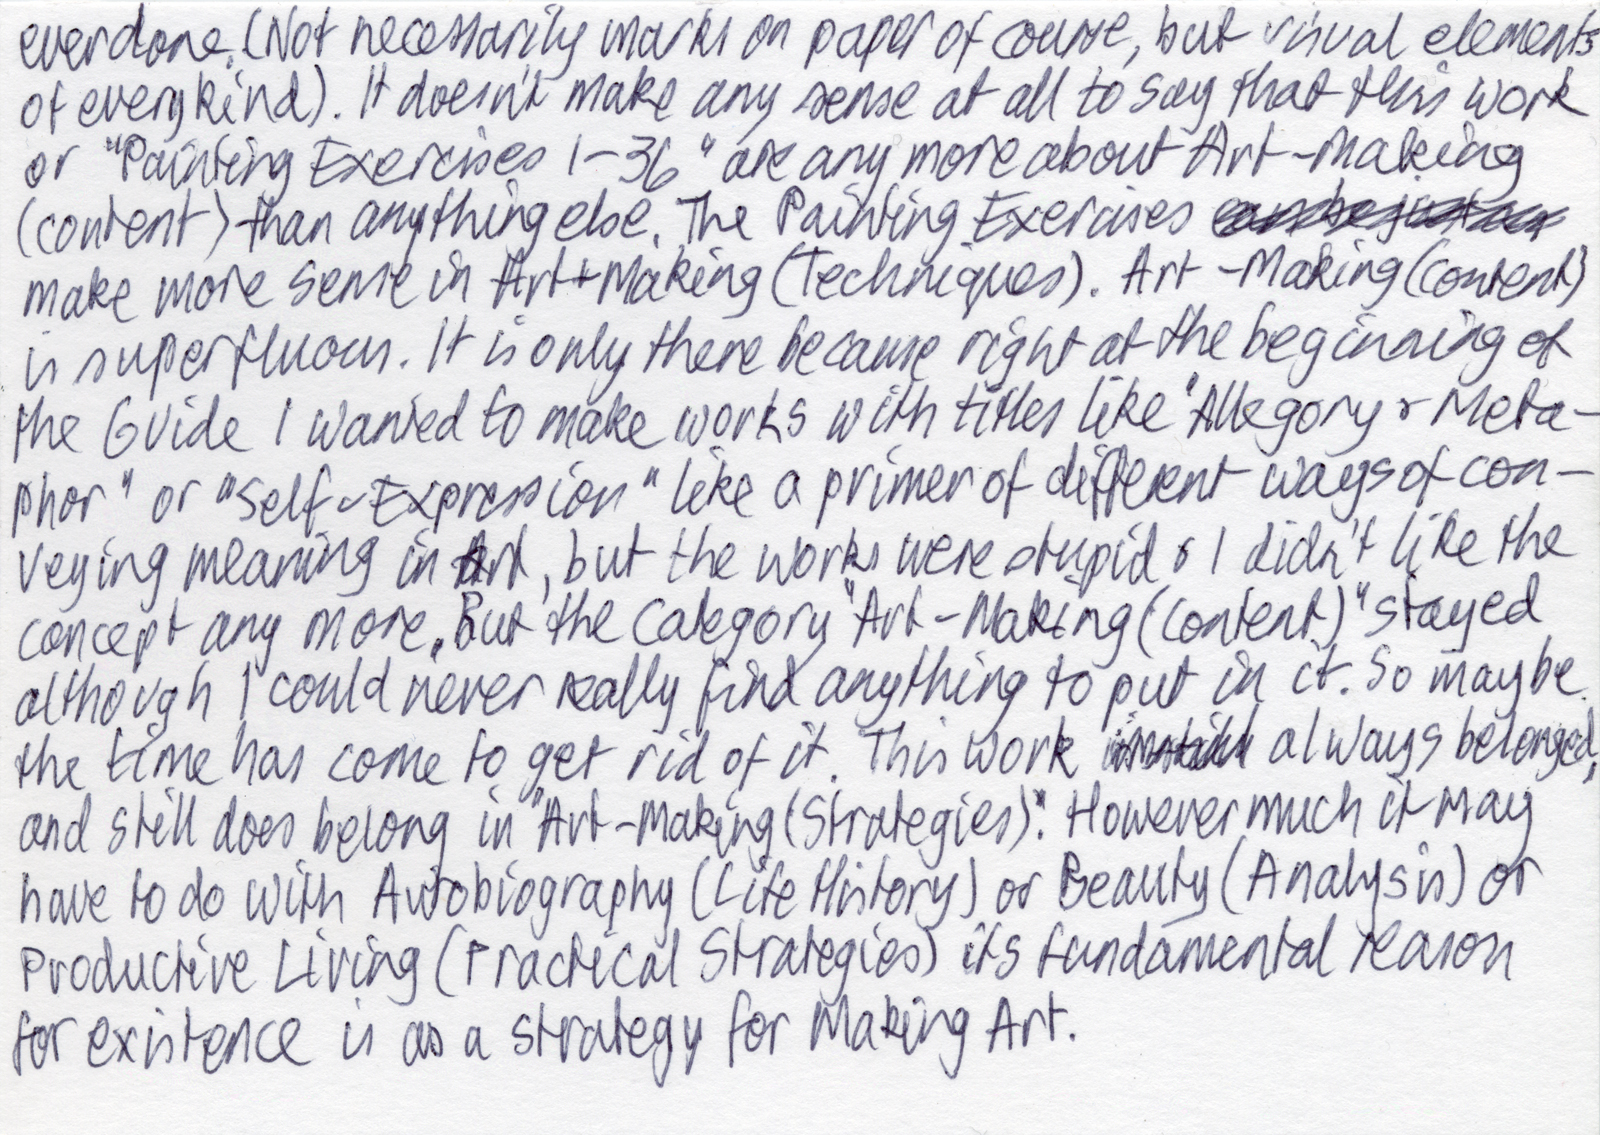 ever done. (Not necessarily marks on paper of course, but visual elements
of every kind). It doesn't make any sense at all to say that this work
or "Painting Exercises 1-36" are any more about Art-Making
(content) than anything else. The Painting Exercises
make more sense in Art-Making (Techniques). Art-Making (content)
is superfluous. It is only there because right at the beginning of
the Guide I wanted to make works with titles like "Allegory & Meta-
phor" or "Self-Expression" like a primer of different ways of con-
veying meaning in Art, but the works were stupid & I didn't like the
concept any more. But the category "Art-Making (content)" stayed
although I could never really find anything to put in it. So maybe
the time has come to get rid of it. This work always belonged,
and still does belong in "Art-Making (Strategies)". However much it may
have to do with Autobiography (Life History) or Beauty (Analysis) or
Productive Living (Practical Strategies) its fundamental reason
for existence is as a strategy for Making Art.